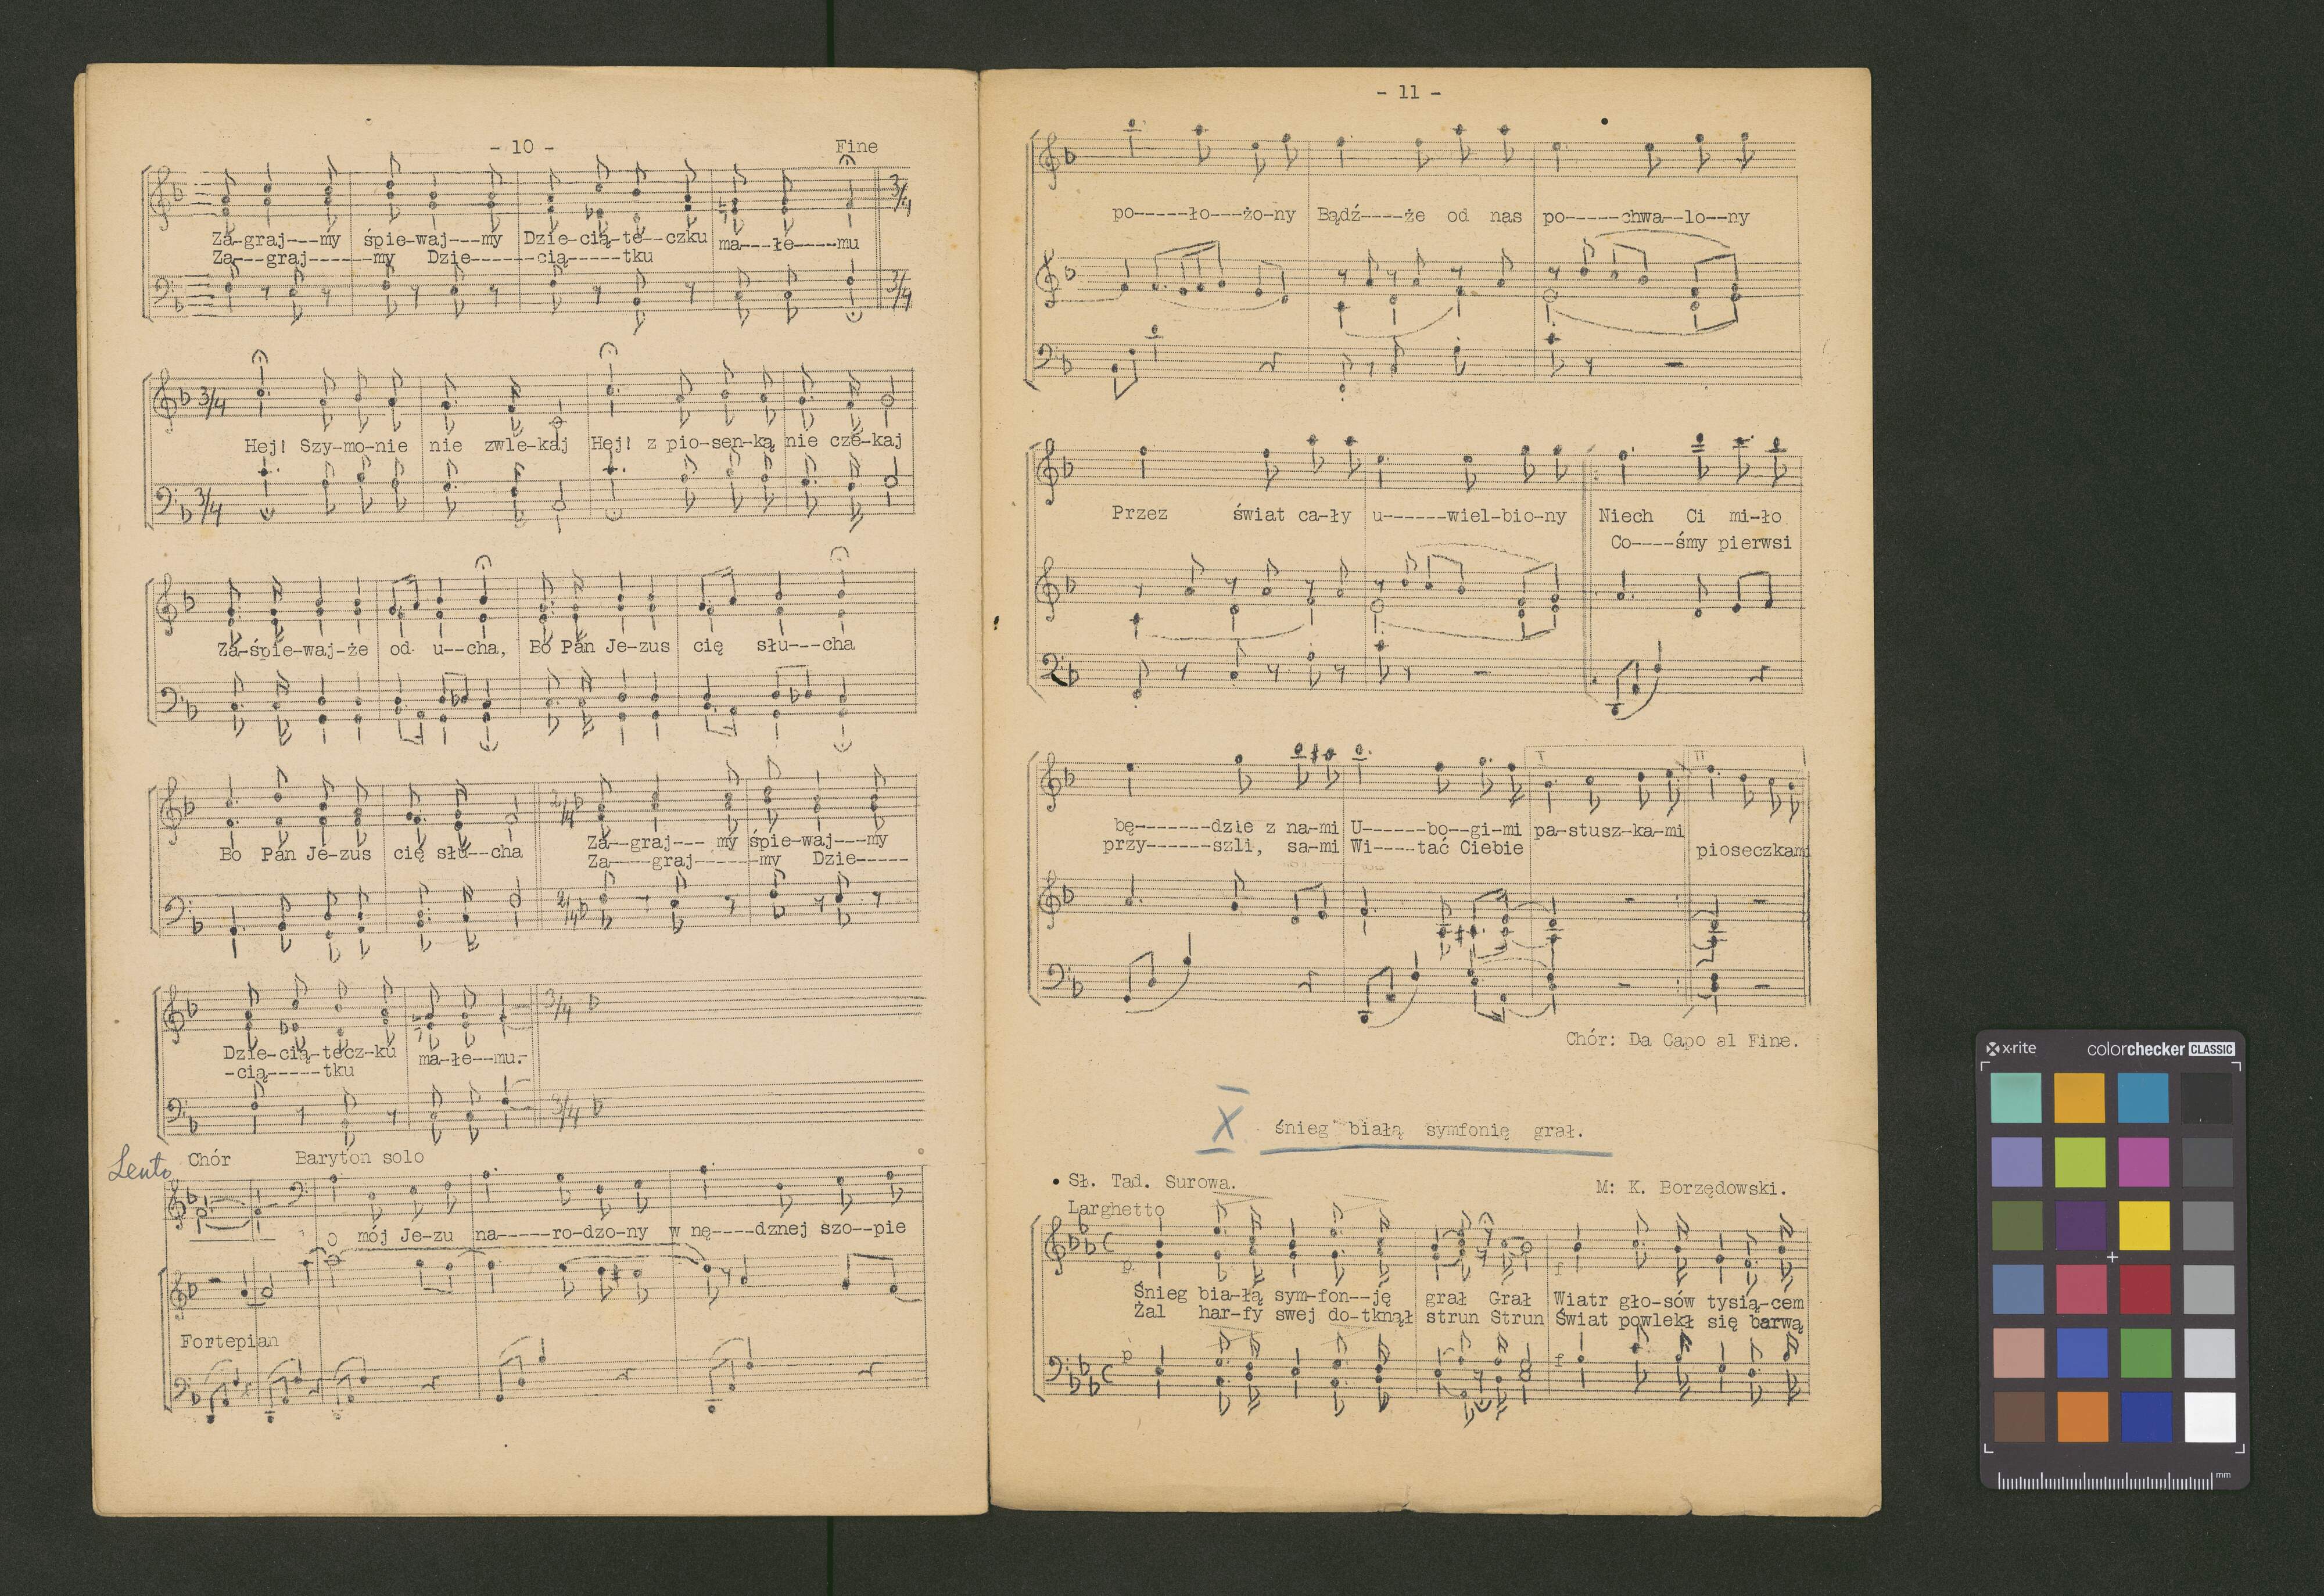 - 10 -
Fine
Za-graj---my śpie-waj---my Dzie-cią-te--czku ma---łe----mu
Za---graj------my Dzie------cią-----tku
3/4
3/4
3/4
Hej! Szy-mo-nie nie zwle-kaj Hej! z pio-sen-ką nie cze-kaj
3/4
Za-śpie-waj-że od u--cha, Bo Pan Je-zus cię słu---cha
2/4
Bo Pan Je-zus cię słu--cha Za--graj--- my śpie-waj---my
Za----graj------my Dzie-----
2/4
3/4
Dzie-cią-tecz-ku ma-łe--mu.-
-cią-----tku
3/4
Lento Chór Baryton solo
O mój Je-zu na-----ro-dzo-ny w nę----dznej szo--pie
Fortepian
- 11 -
po-----ło---żo-ny Bądź----że od nas po-----chwa--lo--ny
Przez świat ca-ły u------wiel-bio-ny Niech Ci mi-ło
Co----śmy pierwsi
I II
bę-------dzie z na-mi U------bo--gi-mi pa-stusz-ka-mi
przy------szli, sa-mi Wi----tać Ciebie pioseczkami
Chór: Da Capo al Fine.
X śnieg białą symfonię grał.
Sł. Tad. Surowa. M: K. Borzędowski.
Larghetto
p f
Śnieg bia-łą sym-fon--ję grał Grał Wiatr gło-sów tysią-cem
Żal har-fy swej do-tknął strun Strun Świat powlekł się barwą
p f
x·rite colorchecker CLASSIC
mm